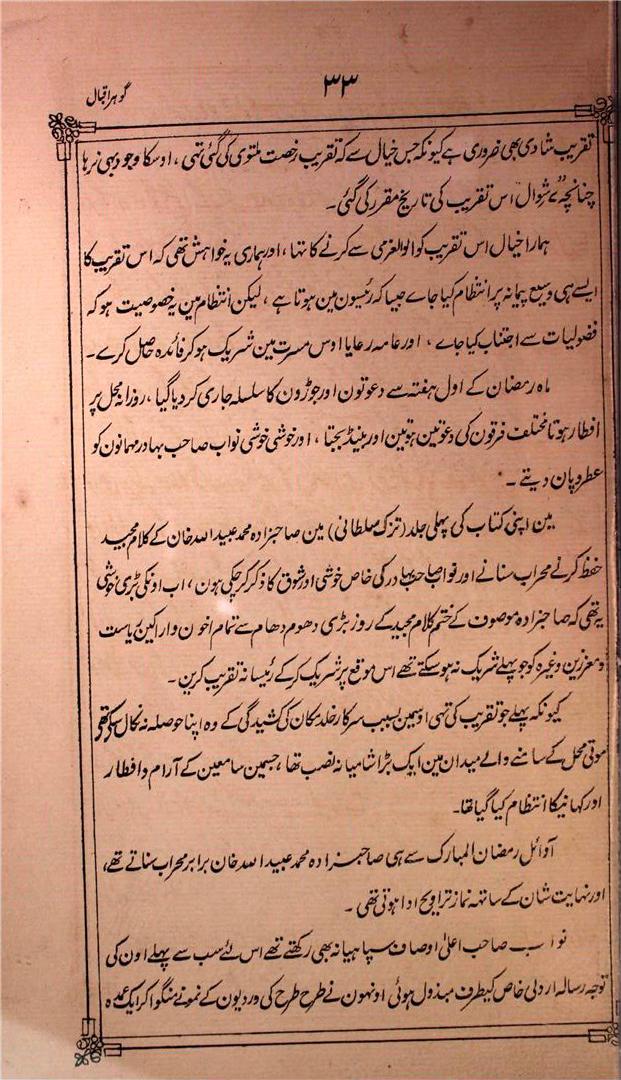 گوہر اقبال
۳۳
تقریب شادی بھی ضروری ہے کیونکہ جس خیال سے کہ تقریب رخصت ملتوی کی گئی تہی ، اوسکا وجود بہی نرہا
چنانچہ ”۷ر شوال“ اس تقریب کی تاریخ مقرر کی گئی ۔
ہمارا خیال اس تقریب کو الوالعزمی سے کرنے کا تہا ، اور ہماری یہ خواہش تھی کہ اس تقریب کا
ایسے ہی وسیع پیمانہ پر انتظام کیا جاے جیسا کہ رئیسون مین ہوتا ہے ، لیکن انتظام مین یہ خصوصیت ہو کہ
فضولیات سے اجتناب کیا جاے ، اور عامہ رعایا اوس مسرت مین شریک ہو کر فائدہ حاصل کرے ۔
ماہ رمضان کے اول ہفتہ سے دعوتون اور جوڑون کا سلسلہ جاری کر دیا گیا ، روزانہ محل پر
افطار ہوتا مختلف فرقون کی دعوتین ہوتین اور بینڈ بجتا ، اور خوشی خوشی نواب صاحب بہادر مہمانون کو
عطر و پان دیتے ۔
مین اپنی کتاب کی پہلی جلد (تزک سلطانی) مین صاحبزادہ محمد عبید اللہ خان کے کلام مجید
حفظ کرنے محراب سنانے اور نواب صاحب بہادر کی خاص خوشی اور شوق کا ذکر کر چکی ہون ، اب اونکی بڑی خوشی
یہ تھی کہ صاحبزادہ موصوف کے ختم کلام مجید کے روز بڑی دھوم دھام سے تمام اخون و اراکین ریاست
و معززین وغیرہ کو جو پہلے شریک نہ ہو سکتے تھے اس موقع پر شریک کر کے رئیسانہ تقریب کرین ۔
کیونکہ پہلے جو تقریب کی تہی اوسمین بسبب سرکار خلد مکان کی کشیدگی کے وہ اپنا حوصلہ نہ نکال سکے تھے
موتی محل کے سامنے والے میدان مین ایک بڑا شامیانہ نصب تھا ، جسمین سامعین کے آرام و افطار
اور کہانیکا انتظام کیا گیا تھا ۔
اوائل رمضان المبارک سے ہی صاحبزادہ محمد عبید اللہ خان برابر محراب سناتے تھے ،
اور نہایت شان کے ساتہہ نماز تراویح ادا ہوتی تھی ۔
نواب صاحب اعلیٰ اوصاف سپاہیانہ بھی رکھتے تھے اس لئے سب سے پہلے اون کی
توجہ رسالہ اردلی خاص کیطرف مبذول ہوئی اونہون نے طرح طرح کی وردیون کے نمونے منگوا کر ایک عمدہ